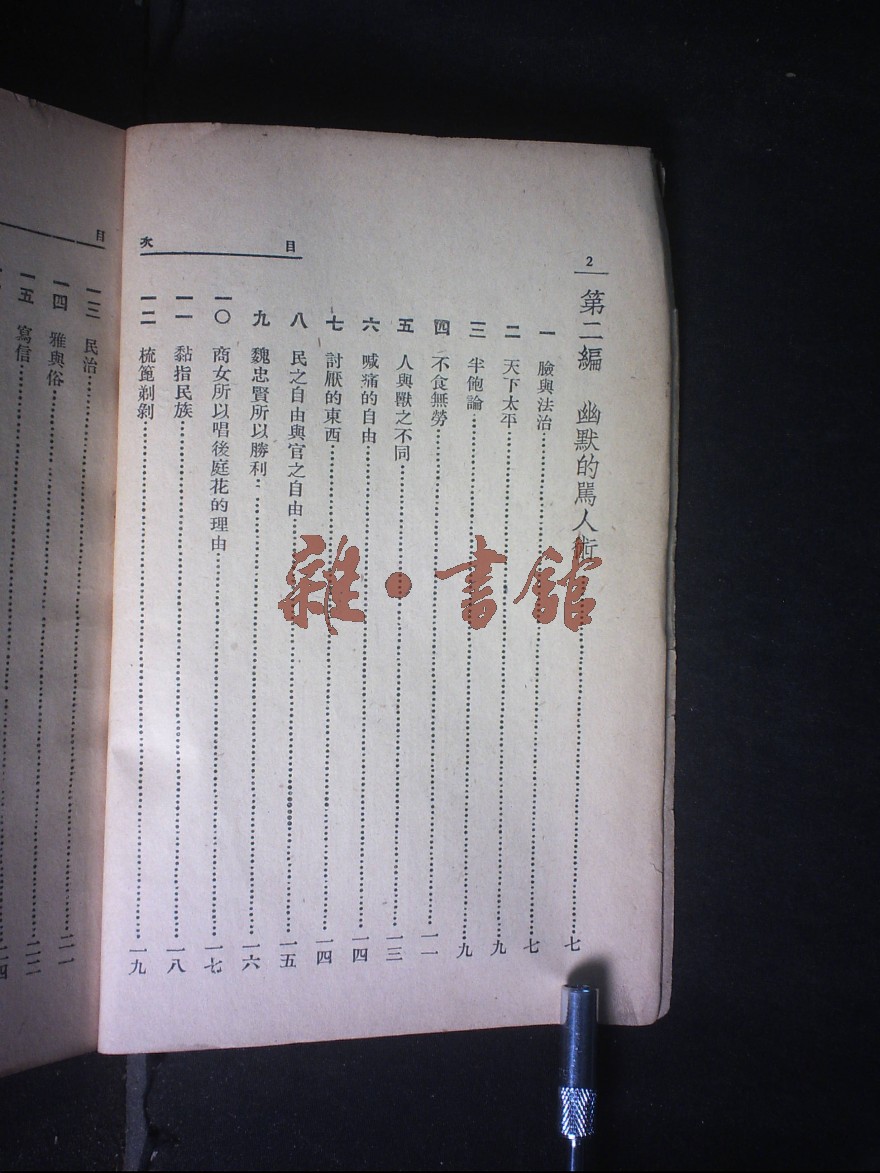 目次
2
第二編 幽默的罵人術……七
一 臉與法治……七
二 天下太平……九
三 半飽論……九
四 不食無勞……一一
五 人與獸之不同……一三
六 喊痛的自由……一四
七 討厭的東西……一四
八 民之自由與官之自由……一五
九 魏忠賢所以勝利……一六
一〇 商女所以唱後庭花的理由……一七
一一 黏指民族……一八
一二 梳篦剃剝……一九
目
一三 民治……二一
一四 雅與俗……二二
一五 寫信
雜·書館